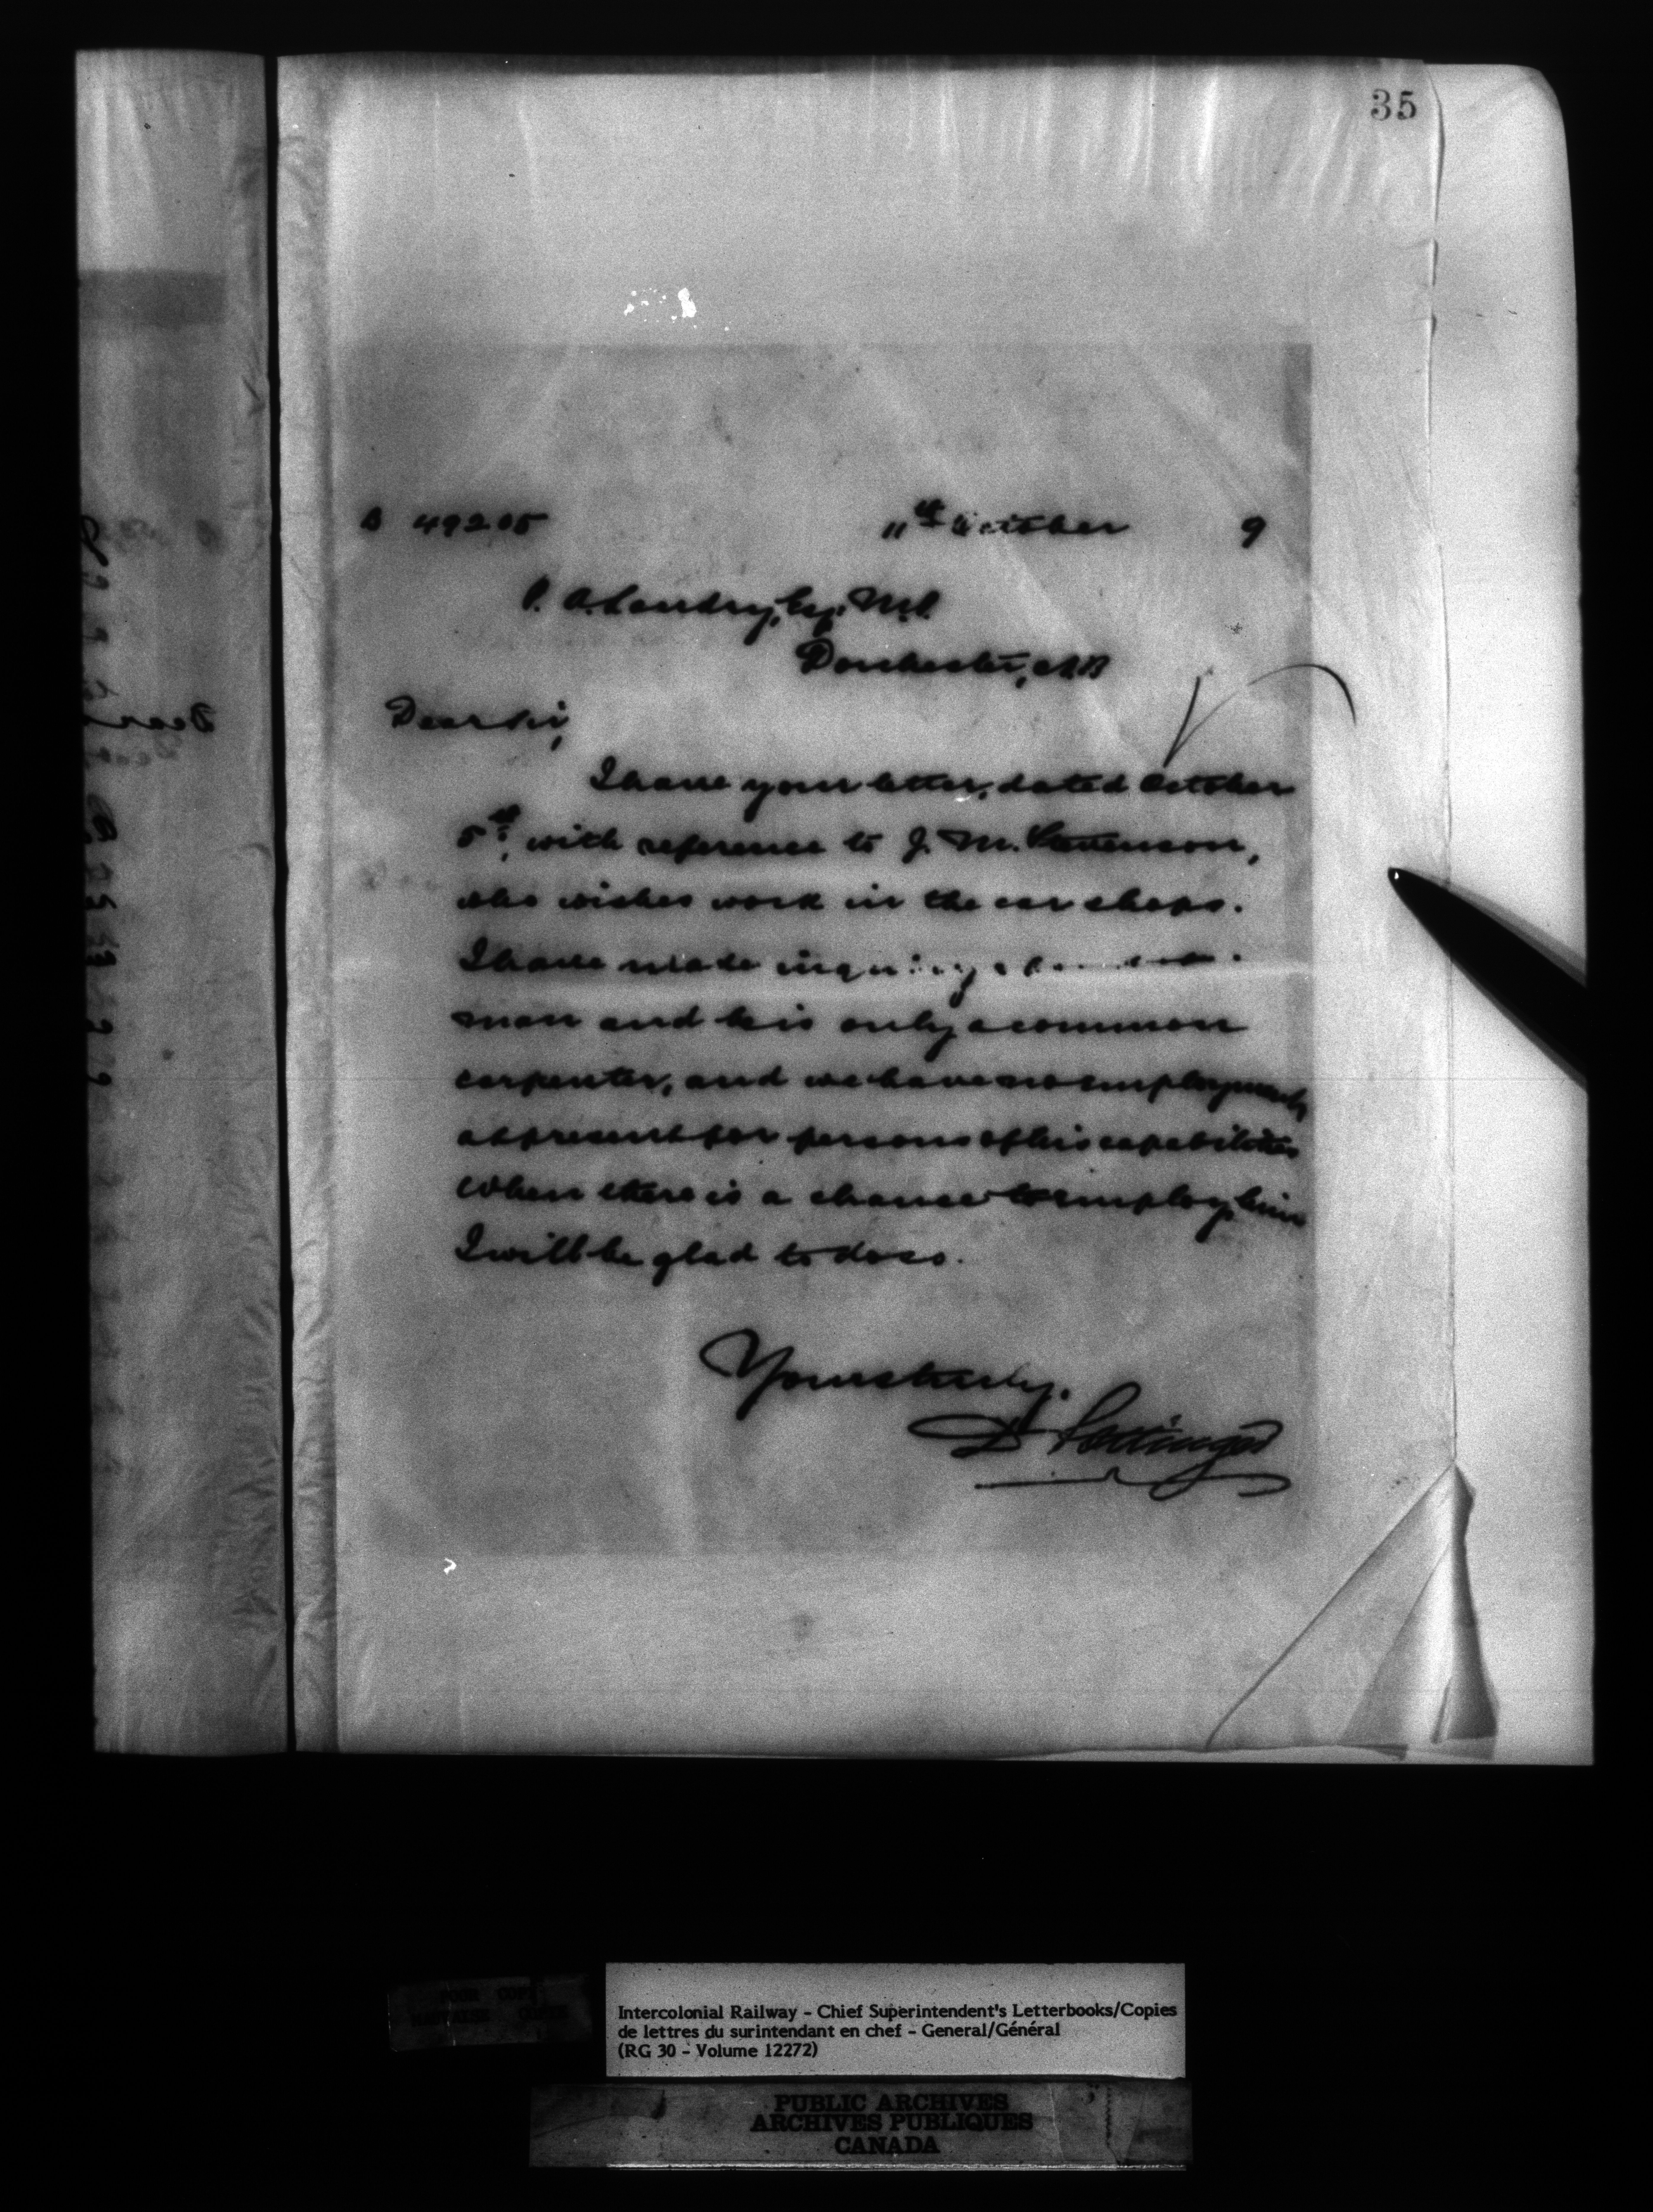 35
B 49205 11th October 9
P. A. Landry, Esq. M.P.
Dorchester, N.B
Dear Sir,
I have your letter, dated October
5th, with reference to J. M. Stevenson,
who wishes work in the car shops.
I have made inquiry about
man and he is only a common
carpenter, and we have no employment
at present for persons of his capabilities
When there is a chance to employ him
I will be glad to do so.
Yours truly.
D Pottinger
Intercolonial Railway - Chief Superintendent's Letterbooks/Copies
de lettres du surintendant en chef - General/Général
(RG 30 - Volume 12272)
PUBLIC ARCHIVES
ARCHIVES PUBLIQUES
CANADA